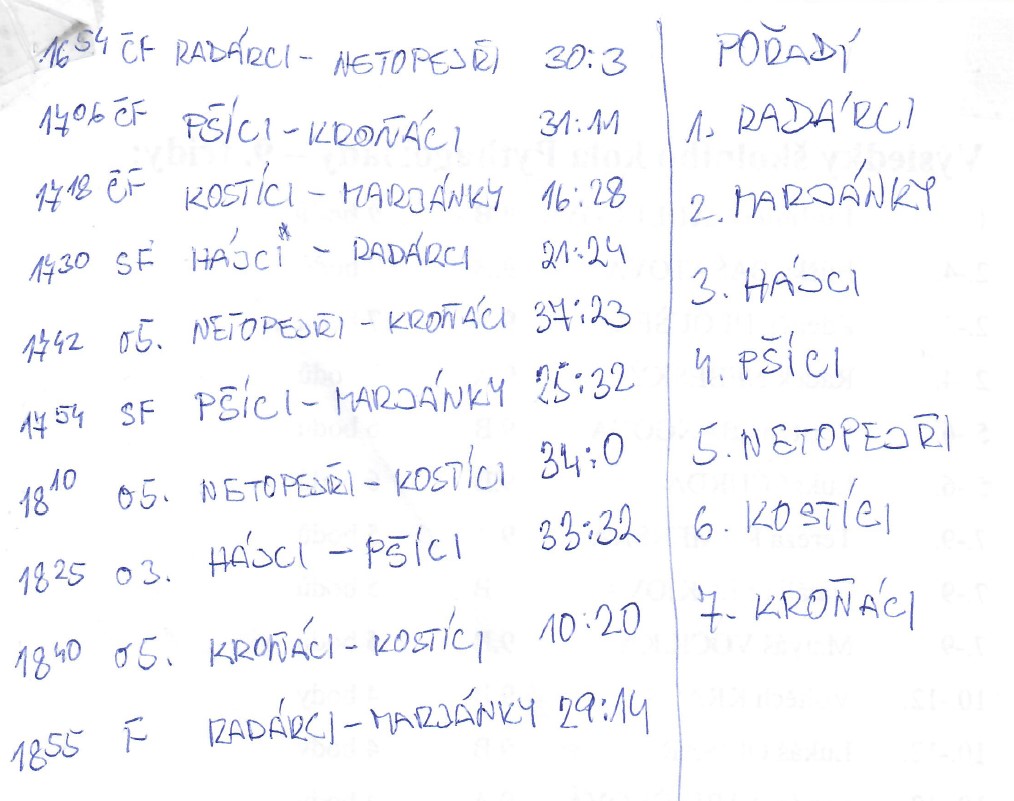 16⁵⁴ ČF RADÁRCI - NETOPEJŘI 30:3
17⁰⁶ ČF PŠÍCI - KROŇÁCI 31:11
17¹⁸ ČF KOSTÍCI - MARJÁNKY 16:28
17³⁰ SF HÁJCI* - RADÁRCI 21:24
17⁴² o5. NETOPEJŘI - KROŇÁCI 37:23
17⁵⁴ SF PŠÍCI - MARJÁNKY 25:32
18¹⁰ o5. NETOPEJŘI - KOSTÍCI 34:0
18²⁵ o3. HÁJCI - PŠÍCI 33:32
18⁴⁰ o5. KROŇÁCI - KOSTÍCI 10:20
18⁵⁵ F RADÁRCI - MARJÁNKY 29:14
POŘADÍ
1. RADÁRCI
2. MARJÁNKY
3. HÁJCI
4. PŠÍCI
5. NETOPEJŘI
6. KOSTÍCI
7. KROŇÁCI